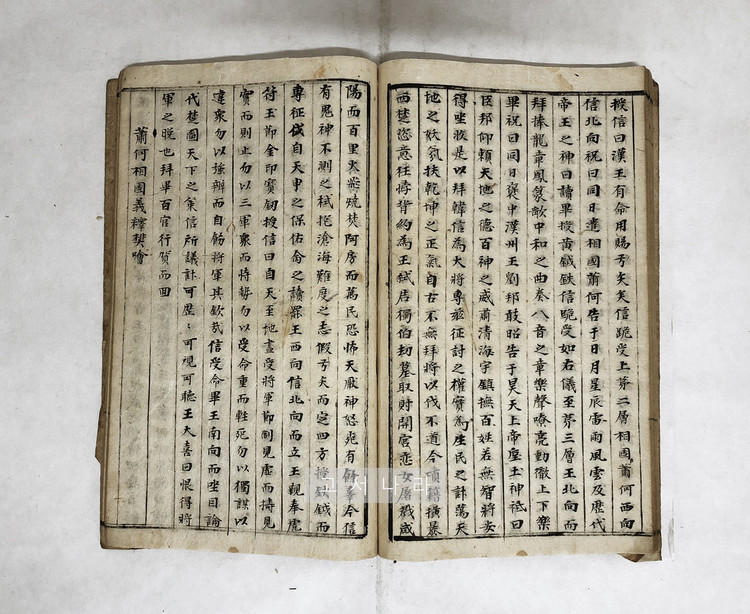 授信曰漢王有命用賜弓矢矢信跪受上第二層相國蕭何西向
信北向祝曰同日遣相國蕭何告于日月星辰雷雨風雲及歷代
帝王之神曰讀畢授黃鉞鈇信跪受如右儀至第三層王北向而
拜捧龍章鳳篆歌中和之曲奏八音之章樂聲嘹亮動徹上下樂
畢祝曰同日褒中漢州王劉邦敢昭告于昊天上帝皇土神祗曰
臣邦仰賴天地之德百神之威肅清海宇鎮撫百姓若無智將安
得坐致是以拜韓信為大將專征討之權實為生民之計蕩天
地之妖氛扶乾坤之正氣自古不無拜將以伐不道今項籍橫暴
西楚恣意狂將背約為王弑君獨伯劫墓取財開宮恣女屠戮咸
陽而百里火燕燒焚阿房而萬民恐怖天厭神怒冤有餘辜今信
有鬼神不測之機挹滄海難度之志假弓矢而定四方授鈇鉞而
專征伐自天申之保佑命之讀罷王西向信北向而立王親奉虎
符玉節金印寶劒授信曰自天至地盡受將軍節制見虛而擣見
實而則止勿以三軍衆而恃勢勿以受命重而輕死勿以獨謀以
違衆勿以強辨而自勉將軍其欽哉信受命畢王南向而坐因論
代楚圖天下之策信所議計可歷々可視可聽王大喜曰恨得將
軍之晚也拜畢百官行賀而回
蕭何相國義釋樊噲
고서나라